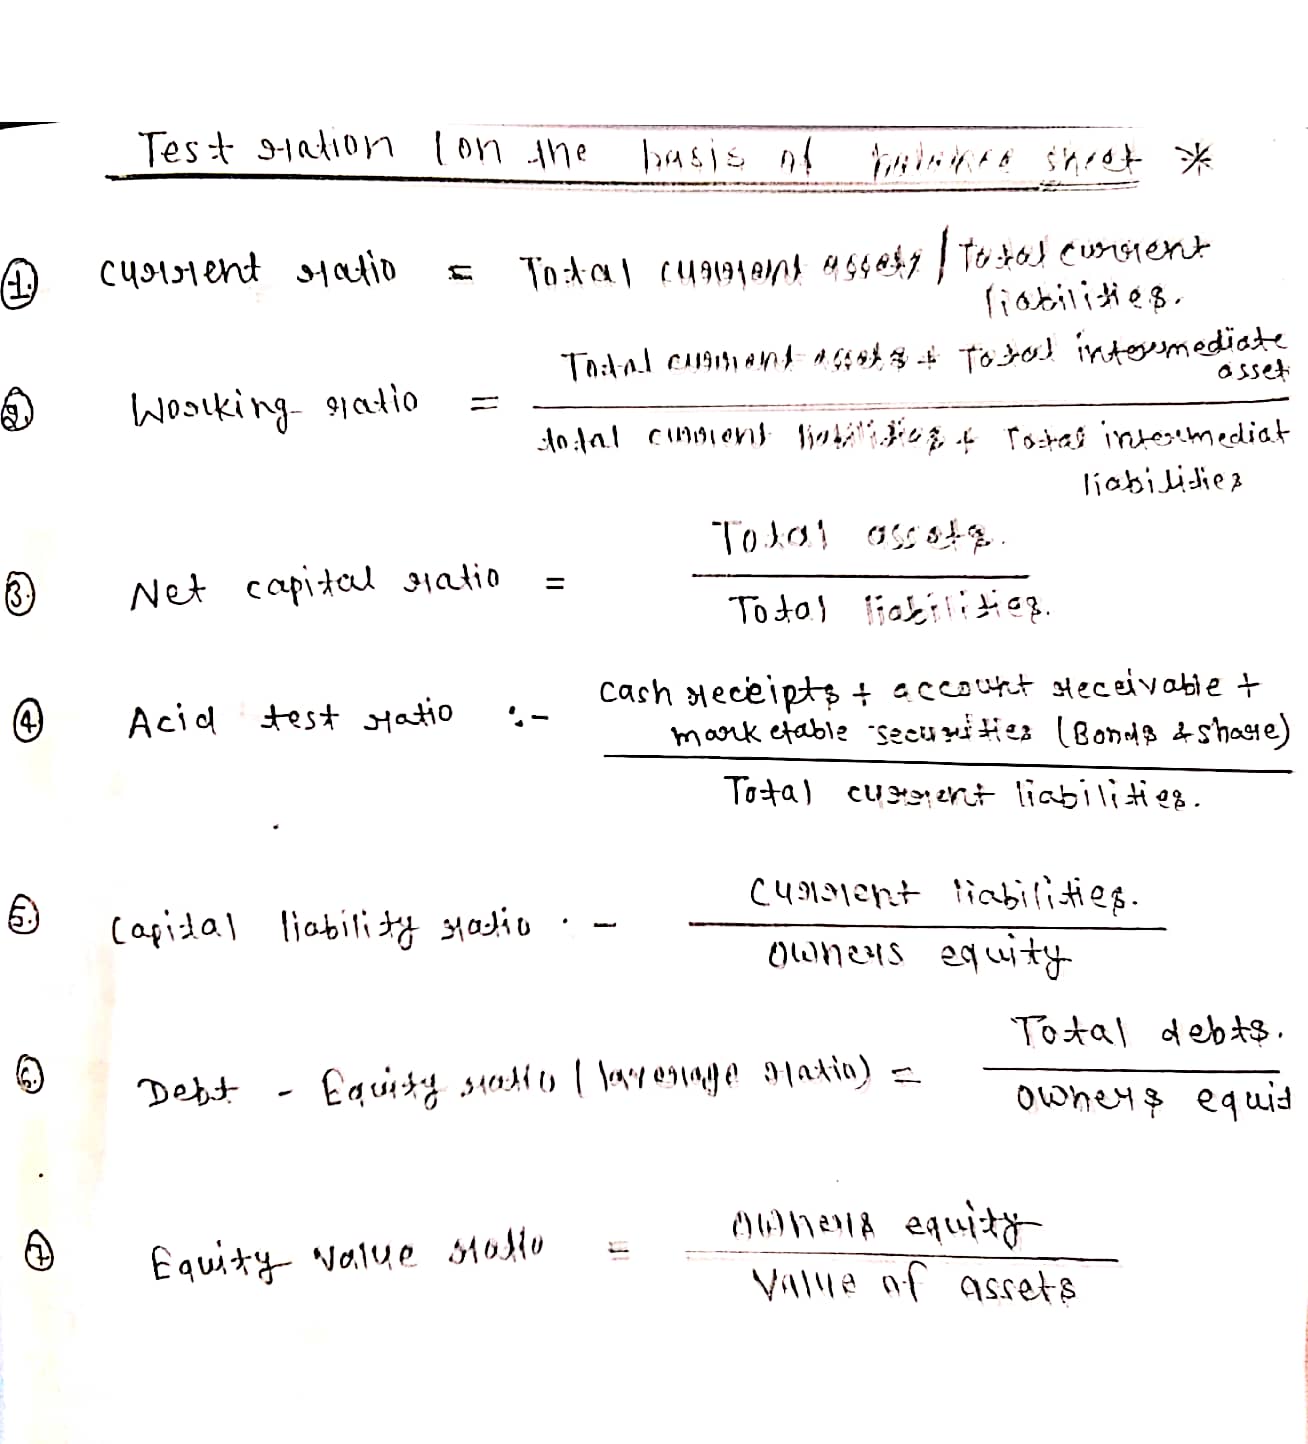 Test ration (on the basis of balance sheet *
1. current ratio = Total current assets / Total current
liabilities.
2. Working ratio = Total current assets + Total intermediate
asset
total current liabilities + Total intermediat
liabilities
3. Net capital ratio = Total assets.
Total liabilities.
4. Acid test ratio :- cash receipts + account receivable +
marketable securities (Bonds & share)
Total current liabilities.
5. Capital liability ratio :- Current liabilities.
owners equity
6. Debt - Equity ratio (laverage ratio) = Total debts.
owners equit
7. Equity value ratio = owners equity
Value of assets